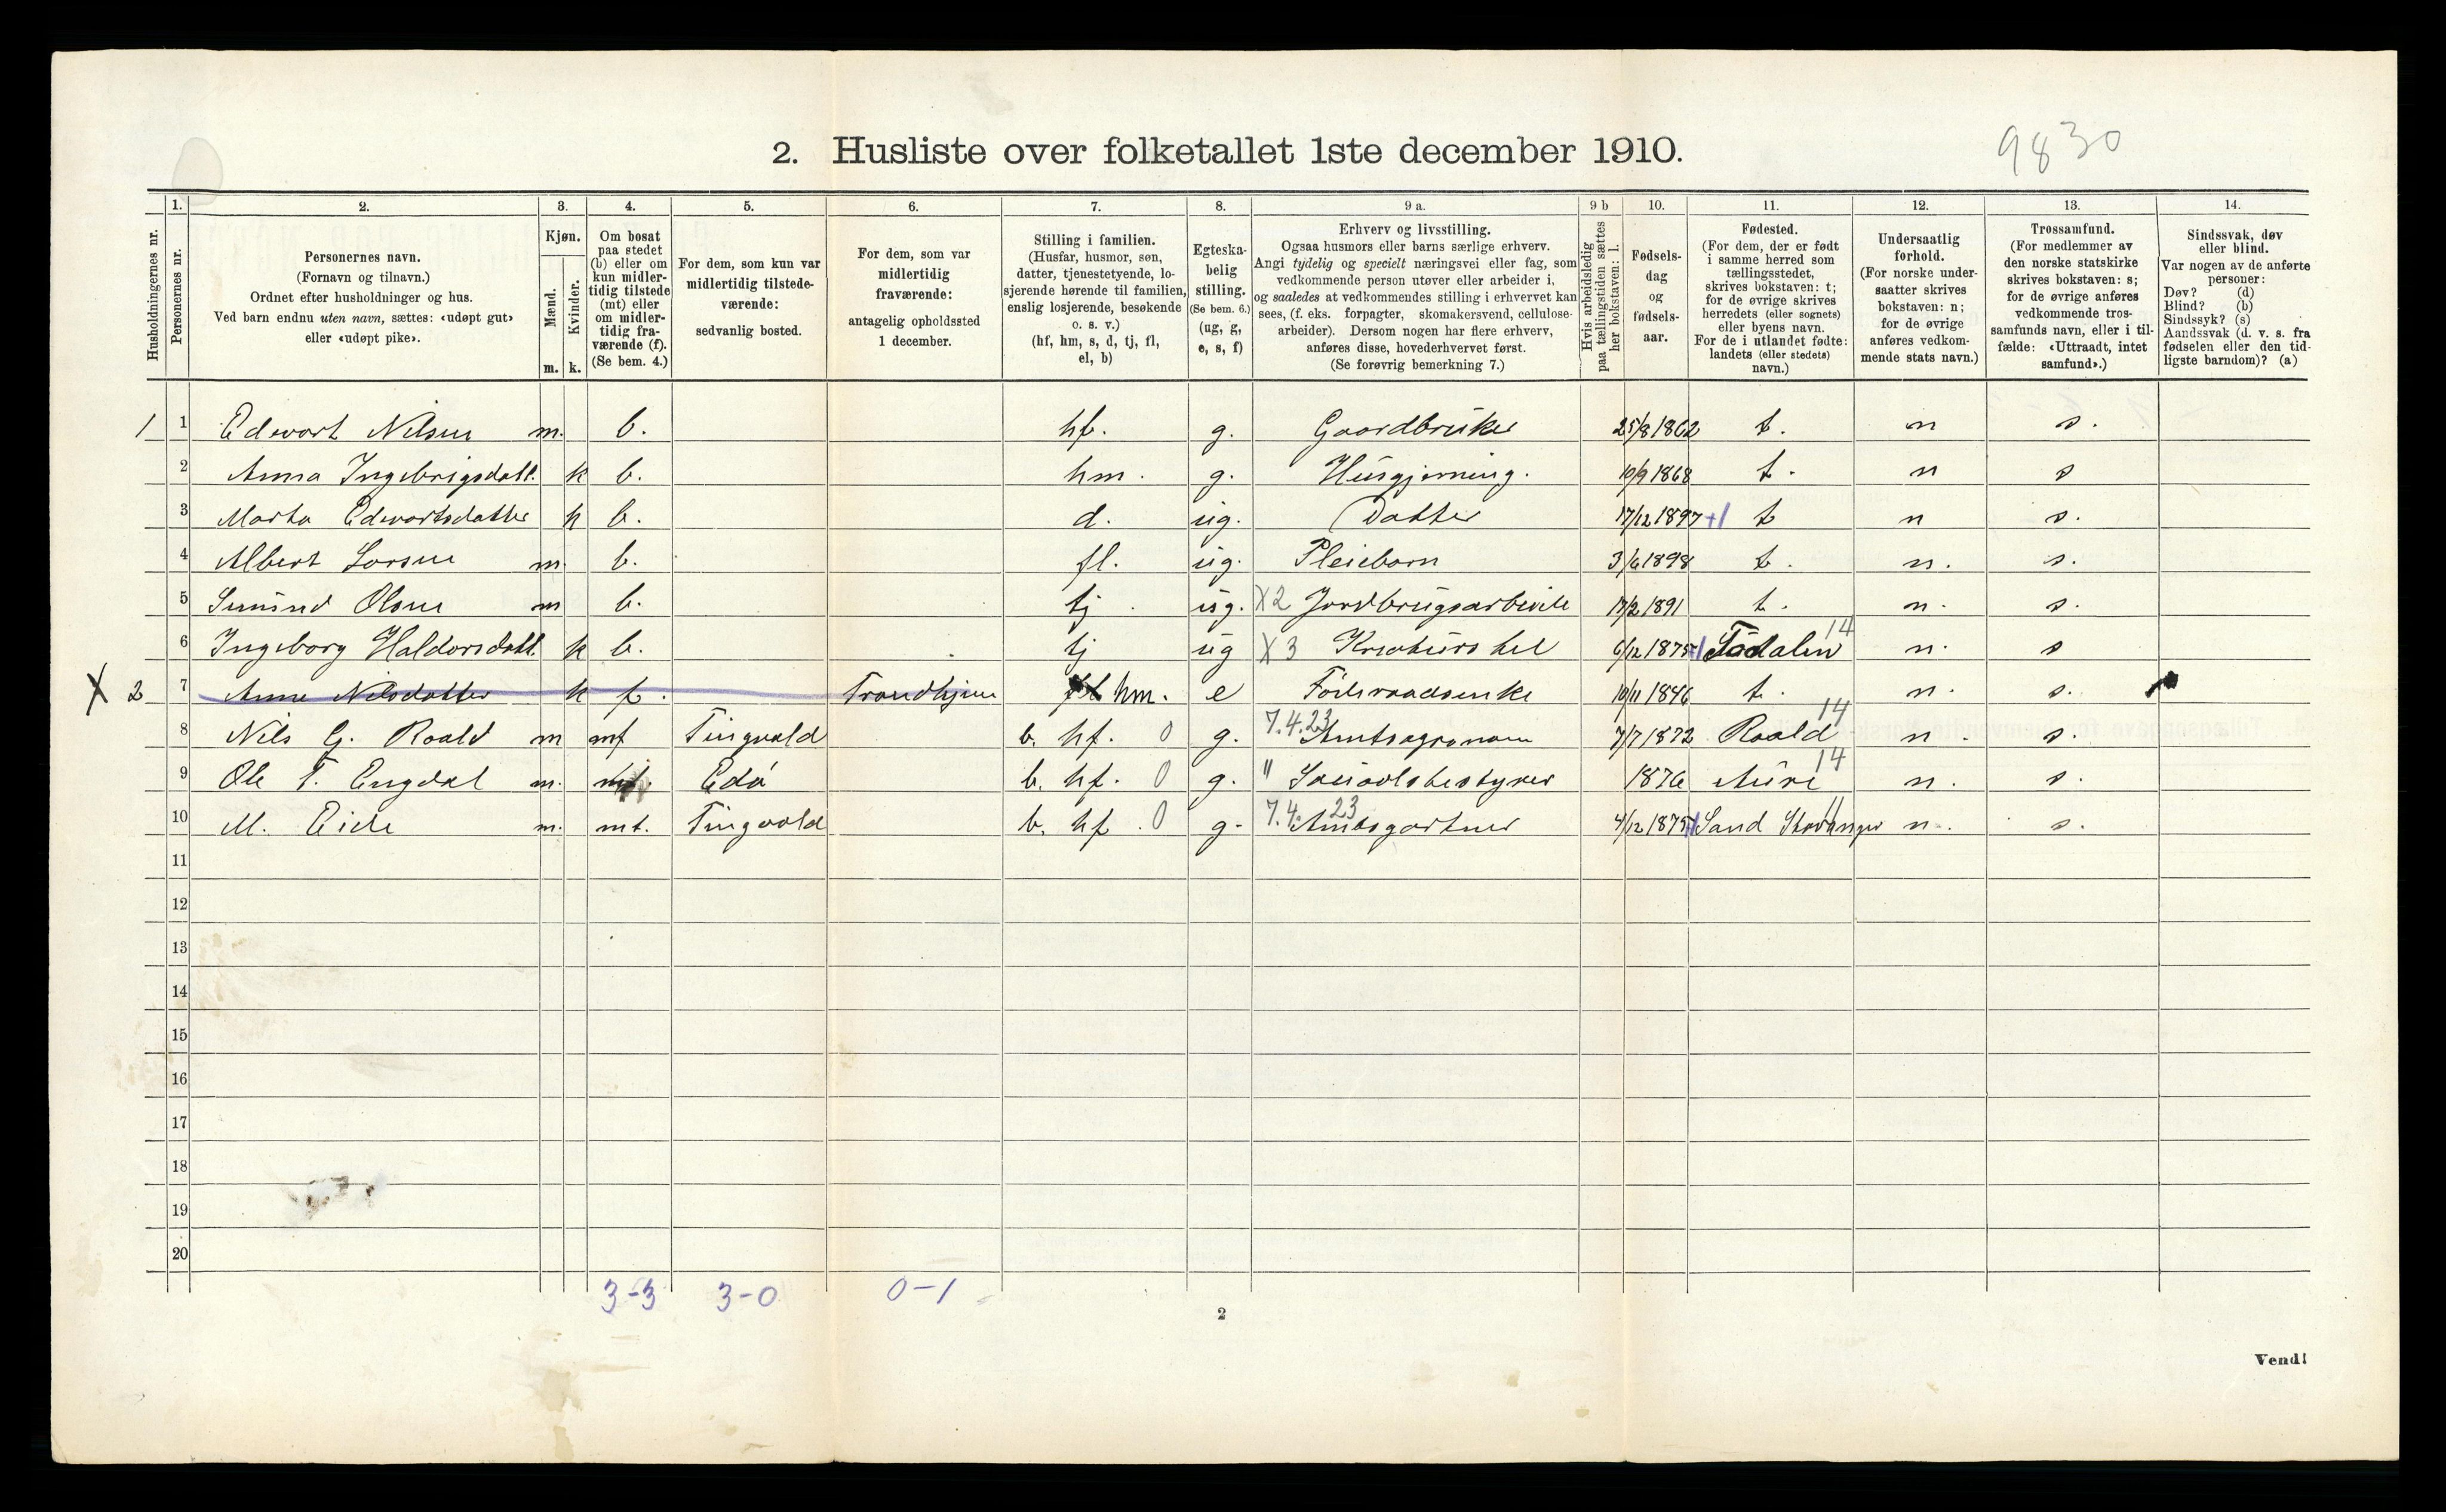 2. Husliste over folketallet 1ste december 1910.
9830
Husholdningernes nr.
1. Personernes nr.
2. Personernes navn. (Fornavn og tilnavn.) Ordnet efter husholdninger og hus. Ved barn endnu uten navn, sættes: «udøpt gut» eller «udøpt pike».
3. Kjøn. Mænd. m. Kvinder. k.
4. Om bosat paa stedet (b) eller om kun midlertidig tilstede (mt) eller om midlertidig fraværende (f). (Se bem. 4.)
5. For dem, som kun var midlertidig tilstedeværende: sedvanlig bosted.
6. For dem, som var midlertidig fraværende: antagelig opholdssted 1 december.
7. Stilling i familien. (Husfar, husmor, søn, datter, tjenestetyende, losjerende hørende til familien, enslig losjerende, besøkende o. s. v.) (hf, hm, s, d, tj, fl, el, b)
8. Egteskabelig stilling. (Se bem. 6.) (ug, g, e, s, f)
9 a. Erhverv og livsstilling. Ogsaa husmors eller barns særlige erhverv. Angi tydelig og specielt næringsvei eller fag, som vedkommende person utøver eller arbeider i, og saaledes at vedkommendes stilling i erhvervet kan sees, (f. eks. forpagter, skomakersvend, cellulosearbeider). Dersom nogen har flere erhverv, anføres disse, hovederhvervet først. (Se forøvrig bemerkning 7.)
9 b Hvis arbeidsledig paa tællingstiden sættes her bokstaven: l.
10. Fødselsdag og fødselsaar.
11. Fødested. (For dem, der er født i samme herred som tællingsstedet, skrives bokstaven: t; for de øvrige skrives herredets (eller sognets) eller byens navn. For de i utlandet fødte: landets (eller stedets) navn.)
12. Undersaatlig forhold. (For norske undersaatter skrives bokstaven: n; for de øvrige anføres vedkommende stats navn.)
13. Trossamfund. (For medlemmer av den norske statskirke skrives bokstaven: s; for de øvrige anføres vedkommende trossamfunds navn, eller i tilfælde: «Uttraadt, intet samfund».)
14. Sindssvak, døv eller blind. Var nogen av de anførte personer: Døv? (d) Blind? (b) Sindssyk? (s) Aandssvak (d. v. s. fra fødselen eller den tidligste barndom)? (a)
1 1 Edvart Nilsen m. b. hf. g. Gaardbruker 25/8 1862 t. n s.
2 Anna Ingebrigsdatt. k b. hm. g. Husgjerning. 10/9 1868 t. n s
3 Marta Edvartsdatter k b. d. ug. Datter 17/12 1897 +1 t n s.
4 Albert Larsen m. b. fl. ug. Pleiebarn 3/6 1898 t. n. s.
5 Olsen m b. tj. ug. X2 Jordbrugsarbeide 17/2 1891 t. n. s.
6 Ingeborg Haldorsdatt. k b. tj ug X3 Kreaturstel 6/12 1875 +1 Todalen 14 n. s
X 2 7 Anne Nilsdatter k f. Trondhjem hm. e Føderaadsenke 10/11 1846 t. n. s.
8 Nils G. Roald m mt Tingvold b. hf. 0 g. 7.4.23 Amtsagronom 7/7 1872 Roald 14 n. s.
9 Ole T. Engdal m. mt. Edø b. hf. 0 g. " 1876 Aure 14 n. s.
10 M. Eide m. mt. Tingvold b. hf. 0 g. 7.4.23 Amtsgartner 4/12 1875 +1 Sand Stavanger 11 n. s.
11
12
13
14
15
16
17
18
19
20
3-3 3-0 0-1
2
Vend!